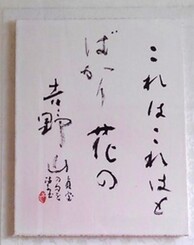 これはこれはと
ばかり花の
吉野山
貞室